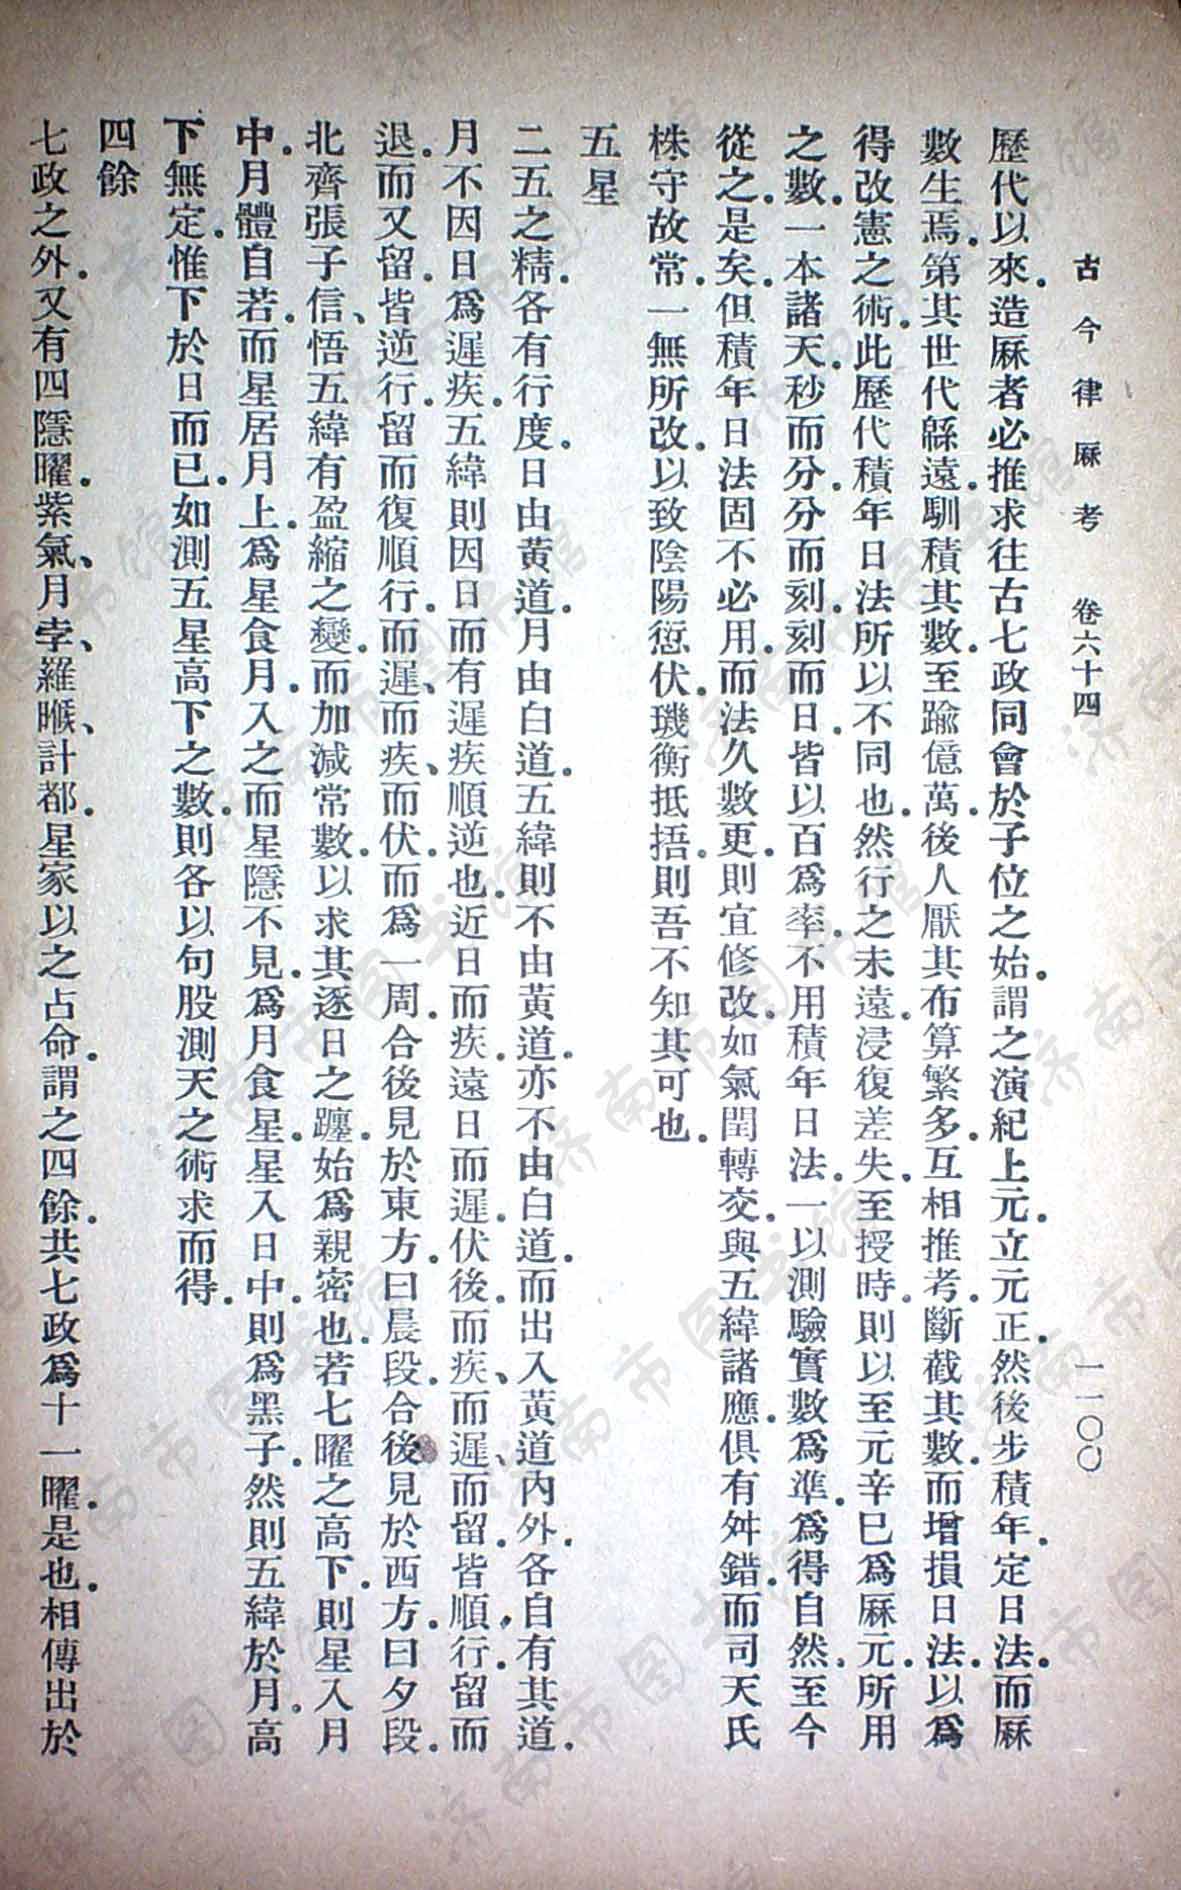 古今律厤考　卷六十四　一一〇〇
歷代以來。造厤者必推求往古七政同會於子位之始。謂之演紀上元。立元正。然後步積年。定日法。而厤
數生焉。第其世代緜遠。馴積其數。至踰億萬。後人厭其布算繁多。互相推考。斷截其數。而增損日法。以爲
得改憲之術。此歷代積年日法所以不同也。然行之未遠。浸復差失。至授時。則以至元辛巳爲厤元。所用
之數。一本諸天。秒而分。分而刻。刻而日。皆以百爲率。不用積年日法。一以測驗實數爲準。爲得自然。至今
從之。是矣。但積年日法固不必用。而法久數更。則宜修改。如氣閏轉交。與五緯諸應。俱有舛錯。而司天氏
株守故常。一無所改。以致陰陽愆伏。璣衡抵捂。則吾不知其可也。
五星
二五之精。各有行度。日由黃道。月由白道。五緯則不由黃道。亦不由白道。而出入黃道內外。各自有其道。
月不因日爲遲疾。五緯則因日而有遲疾順逆也。近日而疾。遠日而遲。伏後而疾、而遲、而留。皆順行。留而
退。而又留。皆逆行。留而復順行。而遲、而疾、而伏。而爲一周。合後見於東方。曰晨段。合後見於西方。曰夕段。
北齊張子信、悟五緯有盈縮之變。而加減常數。以求其逐日之躔。始爲親密也。若七曜之高下。則星入月
中。月體自若。而星居月上。爲星食月。入之而星隱不見。爲月食星。星入日中。則爲黑子。然則五緯於月。高
下無定。惟下於日而已。如測五星高下之數。則各以句股測天之術求而得。
四餘
七政之外。又有四隱曜。紫氣、月孛、羅睺、計都。星家以之占命。謂之四餘。共七政爲十一曜。是也。相傳出於